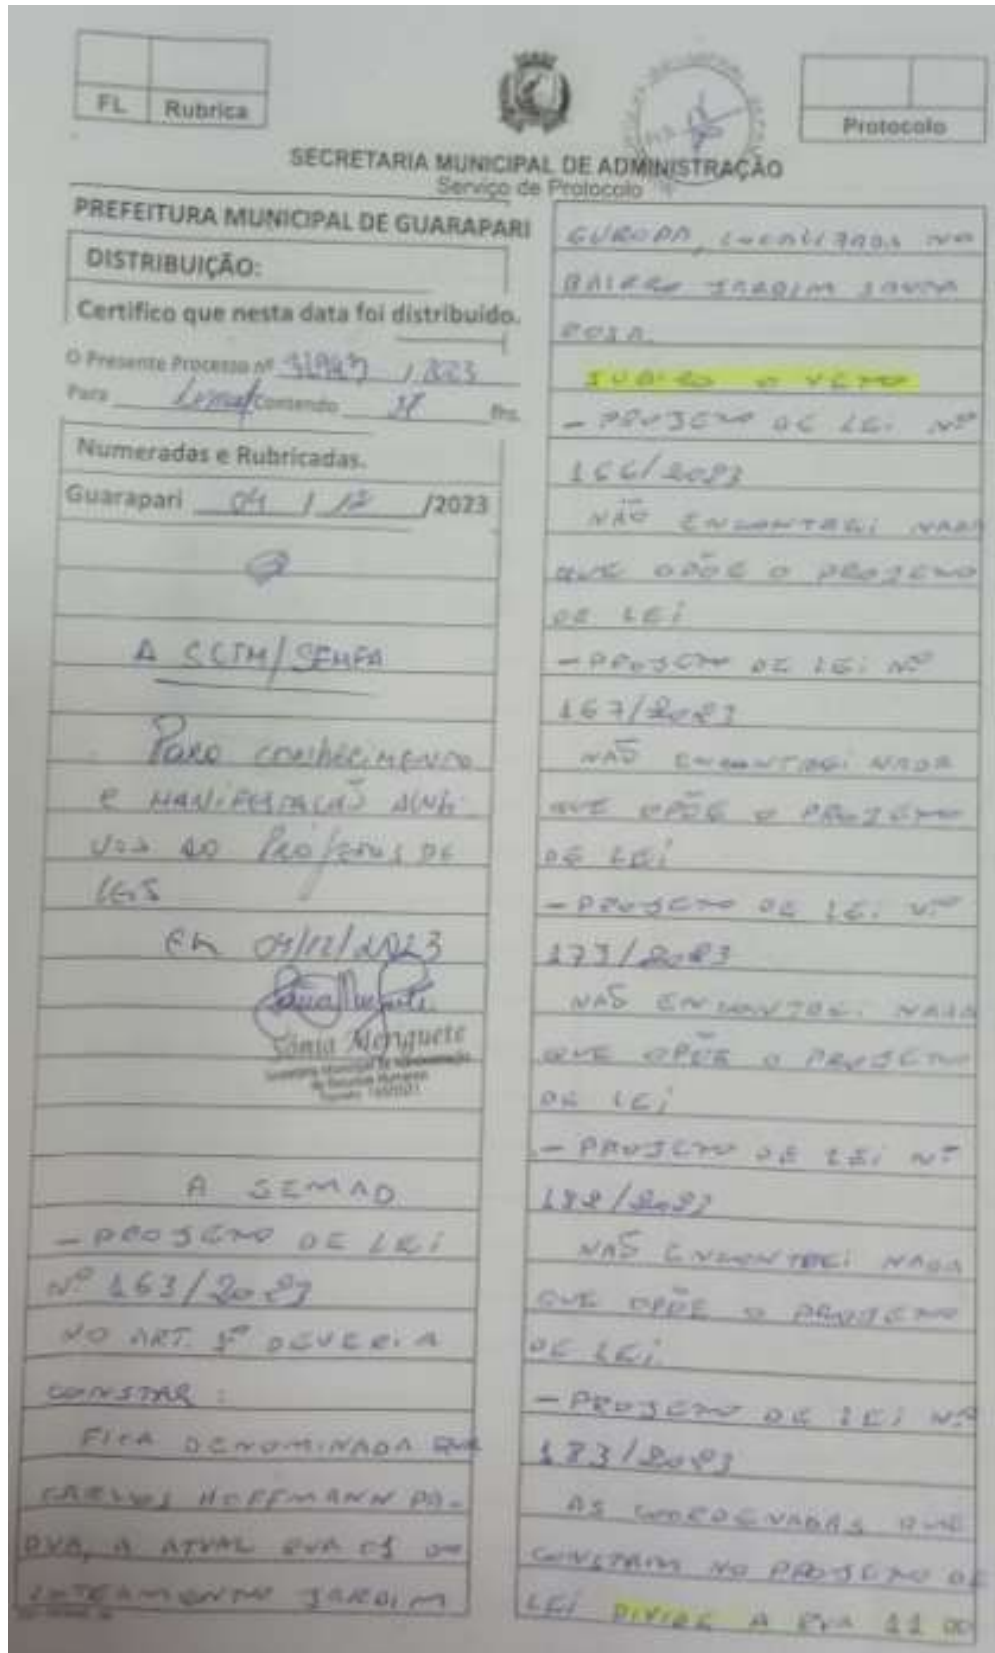 FL Rubrica
Protocolo
SECRETARIA MUNICIPAL DE ADMINISTRAÇÃO
Serviço de Protocolo
PREFEITURA MUNICIPAL DE GUARAPARI
DISTRIBUIÇÃO:
Certifico que nesta data foi distribuído.
O Presente Processo nº / 
Para Contendo fls.
Numeradas e Rubricadas.
Guarapari 04 / 12 /2023
A SCTM/SEMFA
Para conhecimento
e MANIFESTAÇÃO
AO DE
LEIS
EM 04/12/2023
Sônia Meriguete
Secretária Municipal de Administração
de Recursos Humanos
A SEMAD
- PROJETO DE LEI
Nº 163/2023
NO ART. 1º DEVERIA
CONSTAR:
FICA DENOMINADA RUA
CARLOS HOFFMANN PA-
A ATUAL RUA 01 DO
LOTEAMENTO JARDIM
EUROPA, LOCALIZADA NO
BAIRRO JARDIM SANTA
ROSA.
O VETO
- PROJETO DE LEI Nº
166/2023
NÃO ENCONTREI NADA
QUE OPÕE O PROJETO
DE LEI
- PROJETO DE LEI Nº
167/2023
NÃO ENCONTREI NADA
QUE OPÕE O PROJETO
DE LEI
- PROJETO DE LEI Nº
173/2023
NÃO ENCONTREI NADA
QUE OPÕE O PROJETO
DE LEI
- PROJETO DE LEI Nº
182/2023
NÃO ENCONTREI NADA
QUE OPÕE O PROJETO
DE LEI.
- PROJETO DE LEI Nº
183/2023
AS COORDENADAS QUE
CONSTAM NO PROJETO DE
LEI DIVIDE A RUA 11 DO